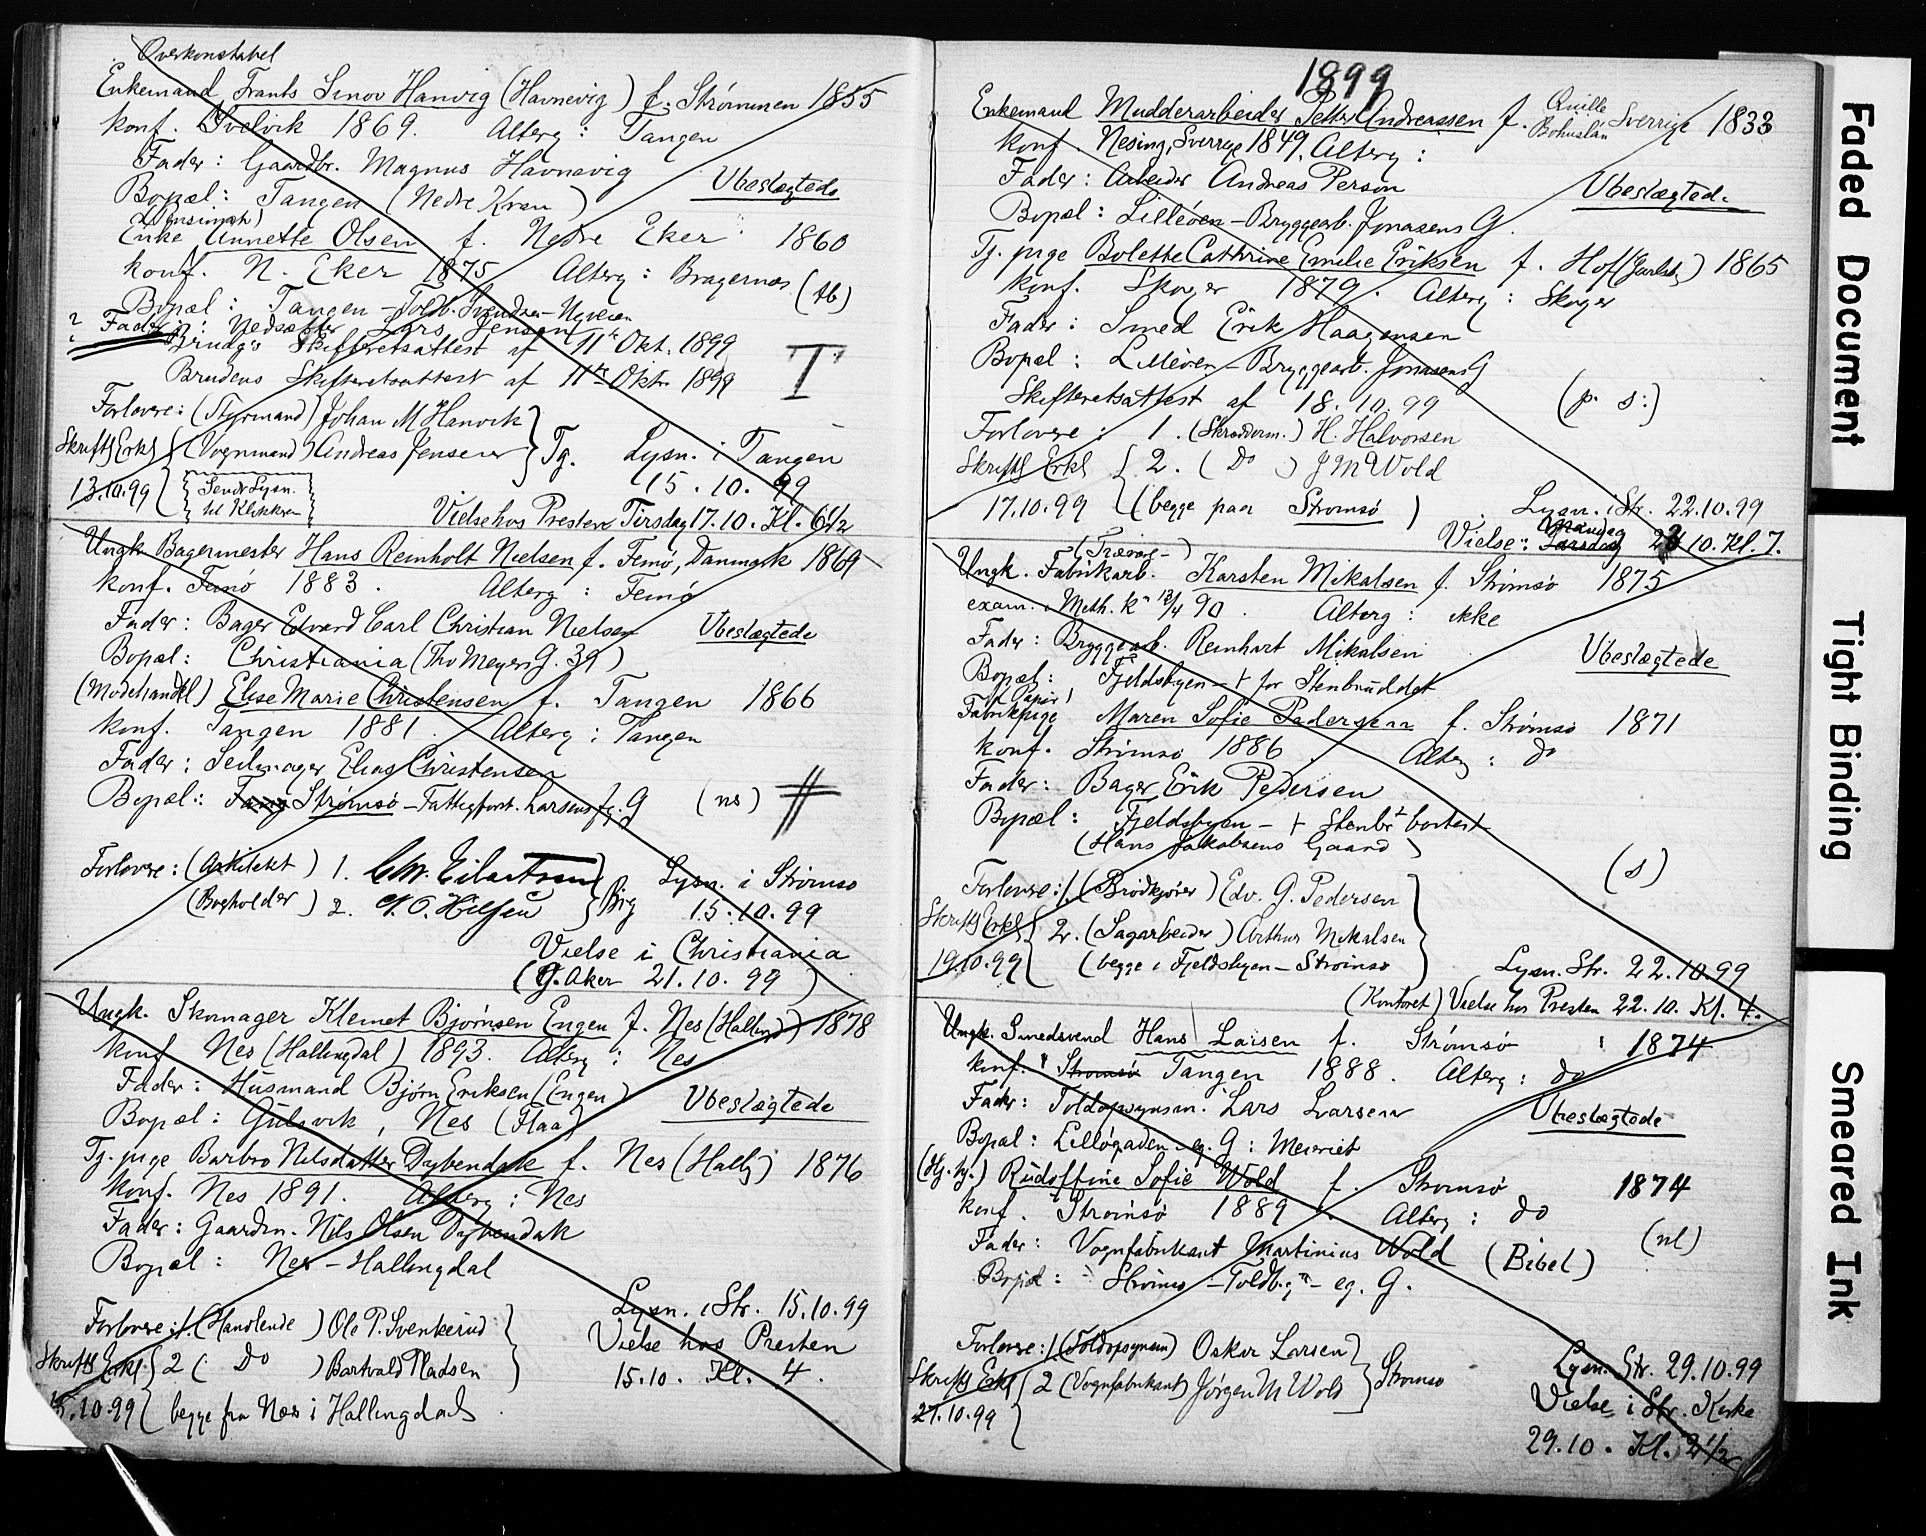 Overkonstabel
Enkemand Frants Simon Hanvig (Havnevig) f. Strømmen 1855
konf. Svelvik 1869. Alterg: Tangen
Fader: Gaardbr. Magnus Havnevig
Bopæl: Tangen (Nedre Kran)
Ubeslægtede
Enke Annette Olsen f. Nedre Eker 1860
konf. N. Eker 1875 Alterg: Bragernæs (tb)
Bopæl: Tangen - Toldb. Svendsen - Nyveien
? Fader: Lars Jensen
Brudg's Skifteretsattest af 11te Okt. 1899
Brudens Skifteretsattest af 11te Okt. 1899
I
Forlovere: (Styrmand) Johan M Hanvik
Skriftl Erkl (Vognmand) Andreas Jensen Tg. Lysn. i Tangen
13.10.99 Sendt Lysn. til Klokkeren 15.10.99
Vielse hos Presten Tirsdag 17.10. Kl. 6 1/2
Ungk. Bagermester Hans Reinholt Nielsen f. Femø, Danmark 1869
konf. Femø 1883. Alterg: Femø
Fader: Bager Edvard Carl Christian Nielsen
Ubeslægtede
Bopæl: Christiania (Th. Meyers G. 39)
(Modehandl) Elise Marie Christensen f. Tangen 1866
konf. Tangen 1881. Alterg: Tangen
Fader: Seilmager Elias Christensen
Bopæl: Tang Strømsø - Fattigforst. Larsens G (ns) #
Forlovere: (Arkitekt) 1. Chr. Eilertsen Lysn. i Strømsø
(Bogholder) 2. Brg 15.10.99
Vielse i Christiania
(G. Aker 21.10.99)
Ungk. Skomager Klemet Bjørnsen Engen f. Nes (Halling) 1878
konf Nes (Hallingdal) 1893. Alterg: Nes
Fader: Husmand Bjørn Eriksen (Engen)
Ubeslægtede
Bopæl: Gulsvik, Nes (Flaa)
Tg. pige Barbro Nilsdatter Dybendak f. Nes (Hallg) 1876
konf. Nes 1891. Alterg: Nes
Fader: Gaardm. Nils Olsen Dybendak
Bopæl: Nes - Hallingdal
Lysn. i Str. 15.10.99
Forlovere: 1. (Handlende) Ole P. Svenkerud
Vielse hos Presten
Skriftl Erkl. 2 (Do) Bartvald Pladsen
15.10. Kl. 4.
15.10.99 begge fra Nes i Hallingdal
1899
Enkemand Mudderarbeider Petter Andreassen f. Quille Bohuslän Sverrige 1833
konf. Nesing, Sverrige 1849. Alterg:
Fader: Arbeider Andreas Person
Ubeslægted.
Bopæl: Lilleøen - Bryggearb. Jonasens G.
Tg. pige Bolette Cathrine Emilie Eriksen f. Hof (Jarlsb) 1865
konf. Skoger 1879. Alterg: Skoger
Fader: Smed Erik Haagensen
Bopæl: Lilleøen - Bryggearb. Jonasens G
Skifteretsattest af 18.10.99 (p. s:)
Forlovere: 1. (Skrædderm.) H. Halvorsen
Skriftl Erkl 2. (Do) J M Wold
17.10.99 (begge paa Strømsø)
Lysn. i Str. 22.10.99
Vielse: Mandag Torsdag 23 10. Kl. 7.
(Trævare-)
Ungk. Fabrikarb. Karsten Mikalsen f. Strømsø 1875
exam. i Meth. K 13/4 90. Alterg: ikke
Fader: Bryggearb. Reinhart Mikalsen
Ubeslægtede
Bopæl: Fjeldsbyen - + for Stenbruddet
(Papir)
Fabrikpige Maren Sofie Pedersen f. Strømsø 1871
konf. Strømsø 1886 Alterg: do
Fader: Bager Erik Pedersen
Bopæl: Fjeldsbyen - + Stenbr bortest
(Hans Jakobsens Gaard)
(s)
Forlovere: 1. (Brødkjører) Edv. G. Pedersen
Skriftl Erkl 2. (Sagarbeider) Arthur Mikalsen
19.10.99 (begge i Fjeldsbyen - Strømsø
Lysn. Str. 22.10.99
(Kontoret) Vielse hos Presten 22.10. Kl. 4.
Ungk. Smedsvend Hans Larsen f. Strømsø 1874
konf. Strømsø Tangen 1888. Alterg: do
Fader: Toldopsynsm. Lars Larsen
Ubeslægtede
Bopæl: Lilløgaden eg. G: Meieriet
Rudolfine Sofie Wold f. Strømsø 1874
konf. Strømsø 1889. Alterg: do
Fader: Vognfabrikant Martinius Wold (Bibel) (nl)
Bopæl: Strømsø - Toldb.g - eg. G.
Forlovere: 1 (Toldopsynsm) Oskar Larsen
Skriftl Erkl 2 (Vognfabrikant) Jørgen M Wold Strømsø
27.10.99
Lysn. Str. 29.10.99
Vielse i Str. Kirke
29.10. Kl. 2 1/2
Faded Document
Tight Binding
Smeared Ink